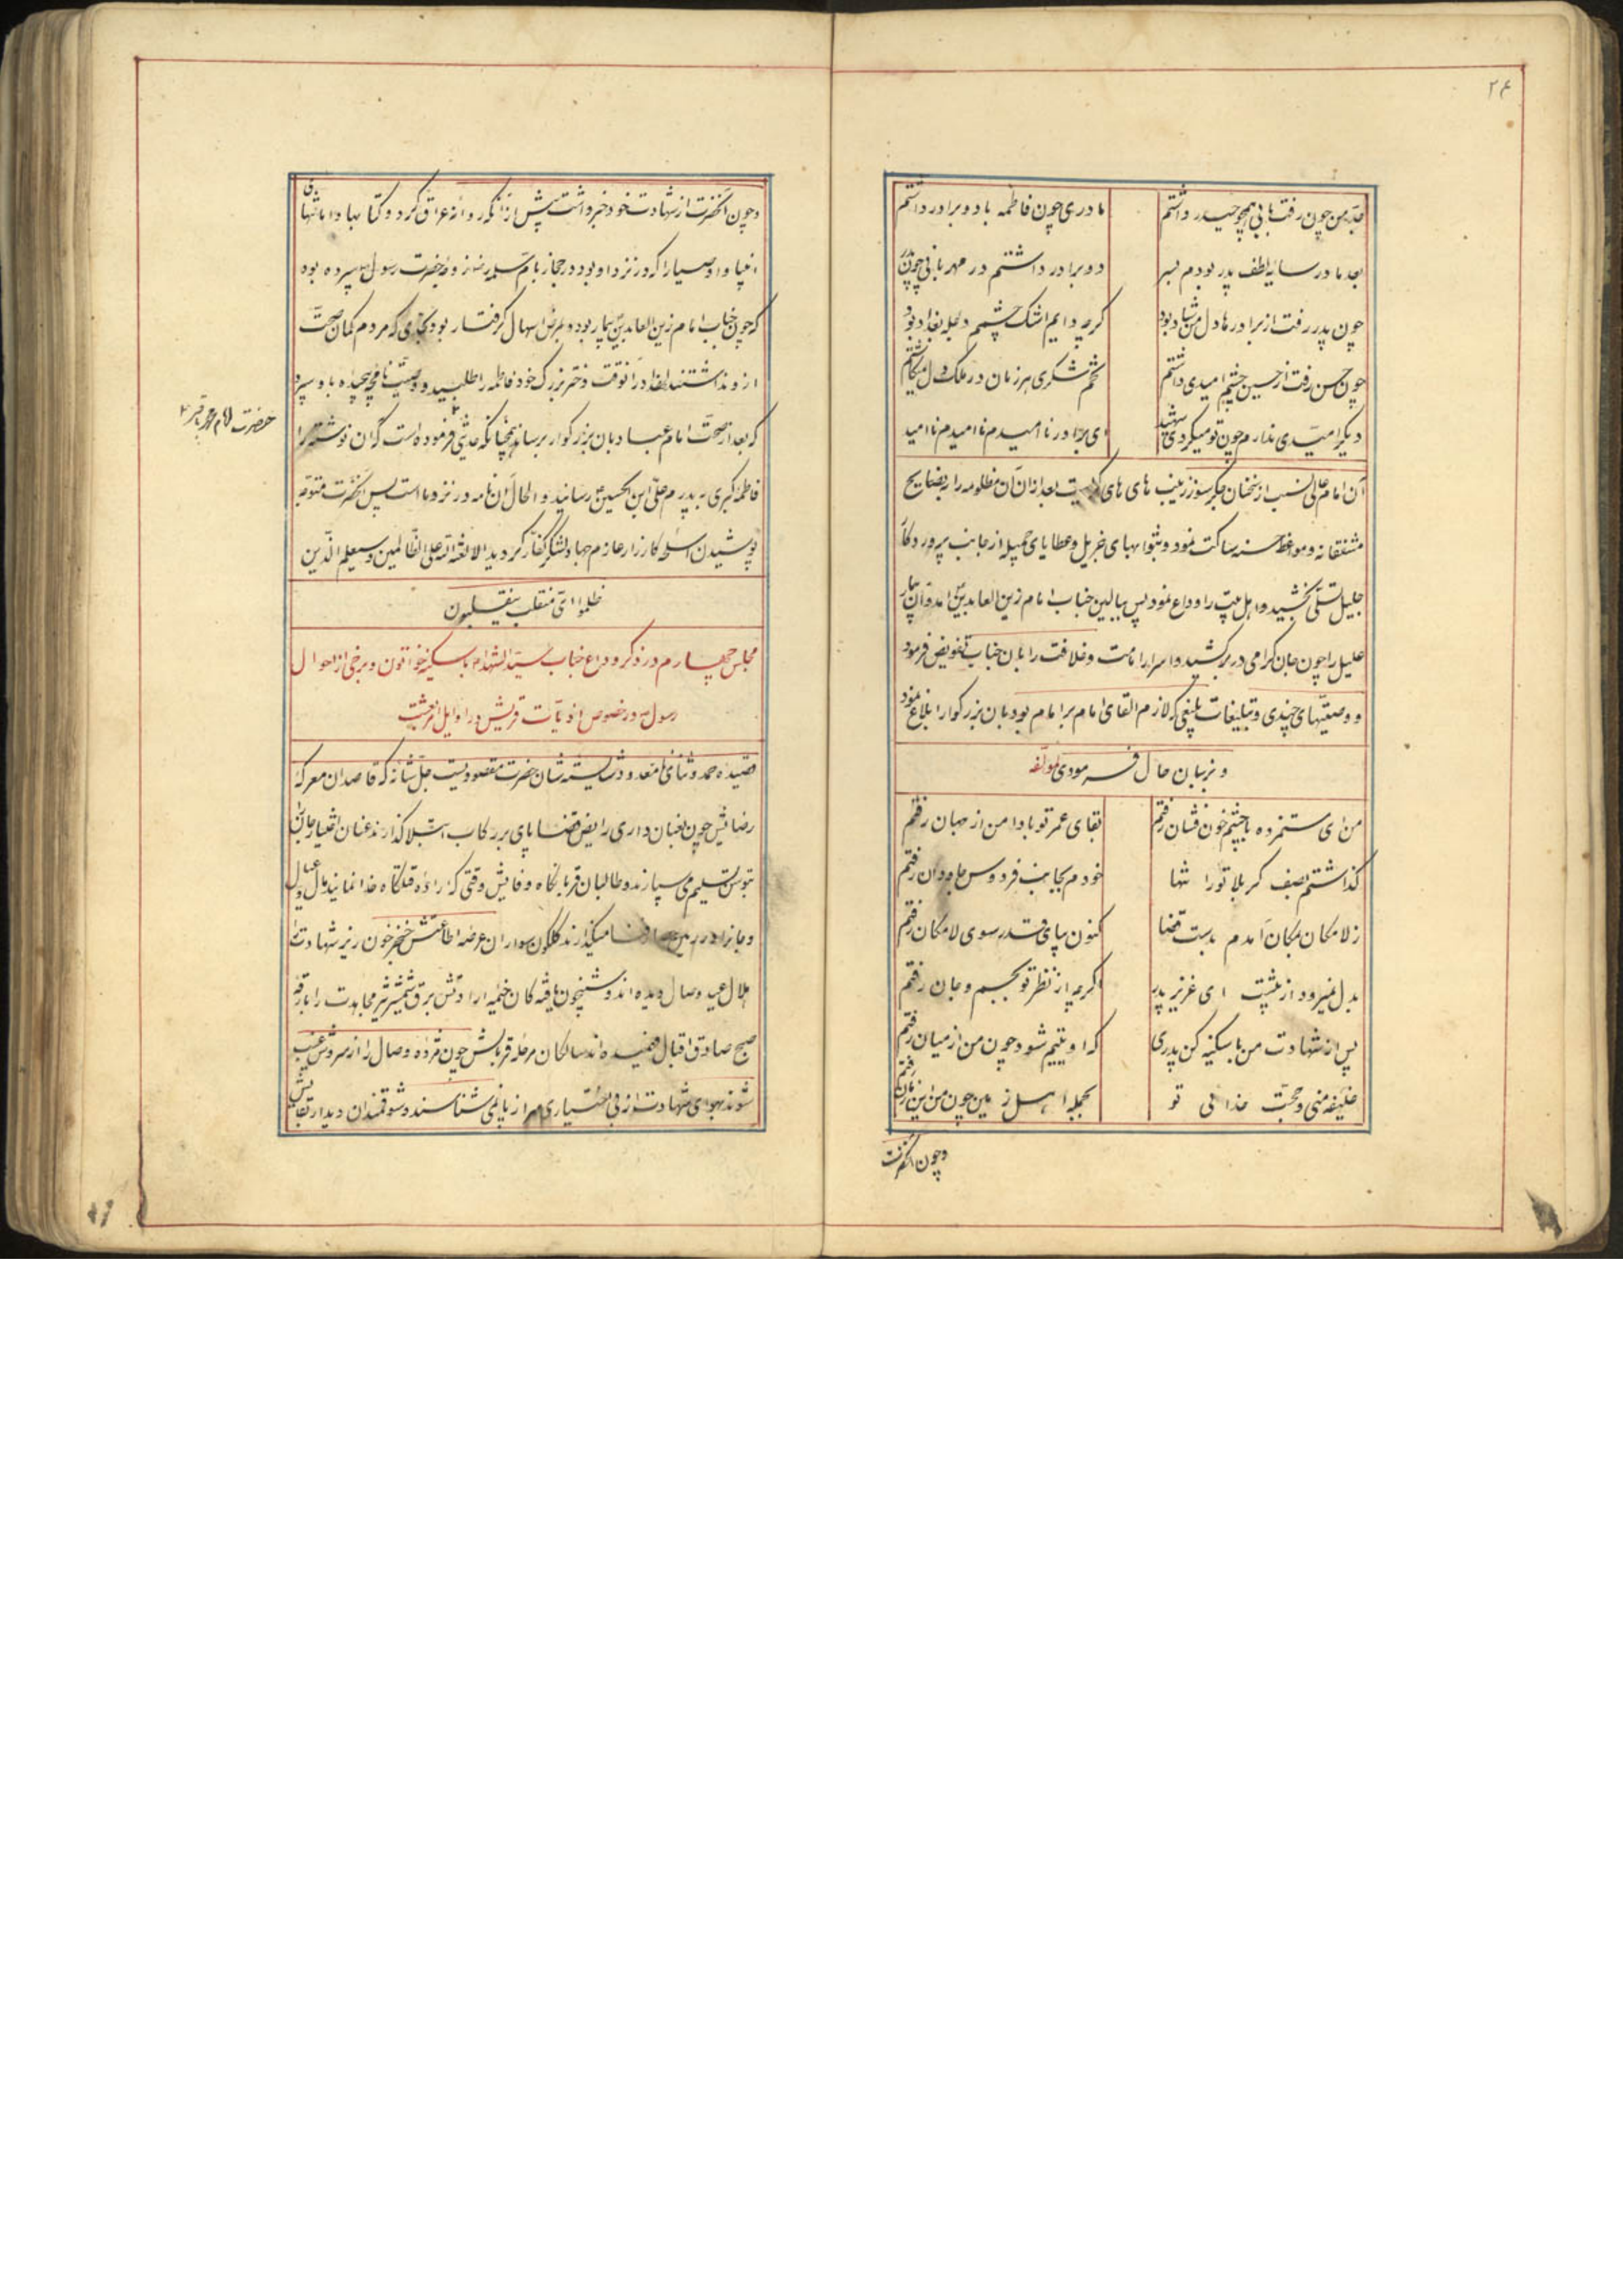 ۲۴
جد من چون رفت بابی همچو حیدر داشتم مادری چون فاطمه با دو برادر داشتم
بعد مادر سایه لطف پدر بودم بسر دو برادر داشتم در مهربانی چون پدر
چون پدر رفت از برادرها دل من شاد بود گرچه دایم اشک چشمم دجله بغداد بود
چون حسن رفت از حسین چشم امیدی داشتم تخم شکری هر زمان در ملک دل میکاشتم
دیگر امیدی ندارم چون تو میگردی شهید ای برادر ناامیدم ناامیدم ناامید
آن امام عالی نسب از سخنان جگر سوز زینب های های گریست بعد از آن آن مظلومه را بنصایح
مشفقانه و مواعظ حسنه ساکت نمود و بثوابهای جزیل و عطایای جمیله از جانب پروردگار
جلیل تسلی بخشید و اهل بیت را وداع نمود پس ببالین جناب امام زین العابدین ع امد و آن بیمار
علیل را چون جان گرامی در بر کشید و اسرار امامت و خلافت را بان جناب تفویض فرمود
و وصیتهای چندی و تبلیغات بلیغی که لازم القای امام بر امام بود بان بزرگوار ابلاغ نمود
و بزبان حال فرمودی لمؤلفه
من ای ستمزده با چشم خون فشان رفتم بقای عمر تو بادا من از جهان رفتم
گذاشتم بصف کربلا تو را تنها خودم بجانب فردوس جاودان رفتم
ز لامکان بمکان آمدم بدست قضا کنون بپای قدر سوی لامکان رفتم
بدل نمیرود از پیشت ای عزیز پدر اگرچه از نظر تو بجسم و جان رفتم
پس از شهادت من با سکینه کن پدری که او یتیم شود چون من از میان رفتم
خلیفه منی و حجت خدائی تو بجمله اهل زمین چون من از این زمان رفتم
و چون آنحضرت
و چون آنحضرت از شهادت خود خبر داشت پیش از آنکه روانه عراق گردد کتابها و امانتهای
انبیا و اوصیا را که در نزد او بود در حجاز بام سلمه رض زوجه حضرت رسول ص سپرده بود
که چون جناب امام زین العابدین ع بیمار بود و بمرض اسهال گرفتار بود بحدی که مردم گمان صحت
ازو نداشتند لهذا در آنوقت دختر بزرگ خود فاطمه را طلبید و وصیت نامچه پیچیده باو سپرد
که بعد از صحت امام عباد بان بزرگوار برساند همچنانکه فرموده است که آن نوشته را
حضرت امام محمد باقر ع
فاطمه کبری به پدرم علی ابن الحسین ع رسانید و الحال آن نامه در نزد ما است پس آنحضرت متوجه
پوشیدن اسلحه کارزار عازم جهاد لشکر کفار گردید الا لعنة الله علی الظالمین و سیعلم الذین
ظلموا ای منقلب ینقلبون
مجلس چهارم در ذکر وداع جناب سید الشهداء با سکینه خواتون و برخی از احوال
رسول ص در خصوص اذیات قریش در اوایل بعثت
قصیده حمد و ثنای نامعدود شایسته شان حضرت مقصودیست جل شانه که قاصدان معرکه
رضایش چون بعنان داری رایض قضا پای بر رکاب ابتلا گذارند عنان اختیار جان را
بتوسن تسلیم می سپارند و طالبان قربانگاه وفایش وقتی که اراده قتلگاه خدا نمایند مال و عیال
و جان را در زمین میگذارند گلگون سواران عرصه اطاعتش خنجر خون ریز شهادت را
هلال عید وصال دیده اند و شبیخون یافته کان خیمه ارادتش برق شمشیر مجاهدت را بارقه
صبح صادق اقبال فهمیده اند سالکان مرحله قربانش چون مژده وصال را از سروش غیب
شنوند بهوای شهادت از بی اختیاری سر از پا نمی شناسند و شوقمندان دیدار